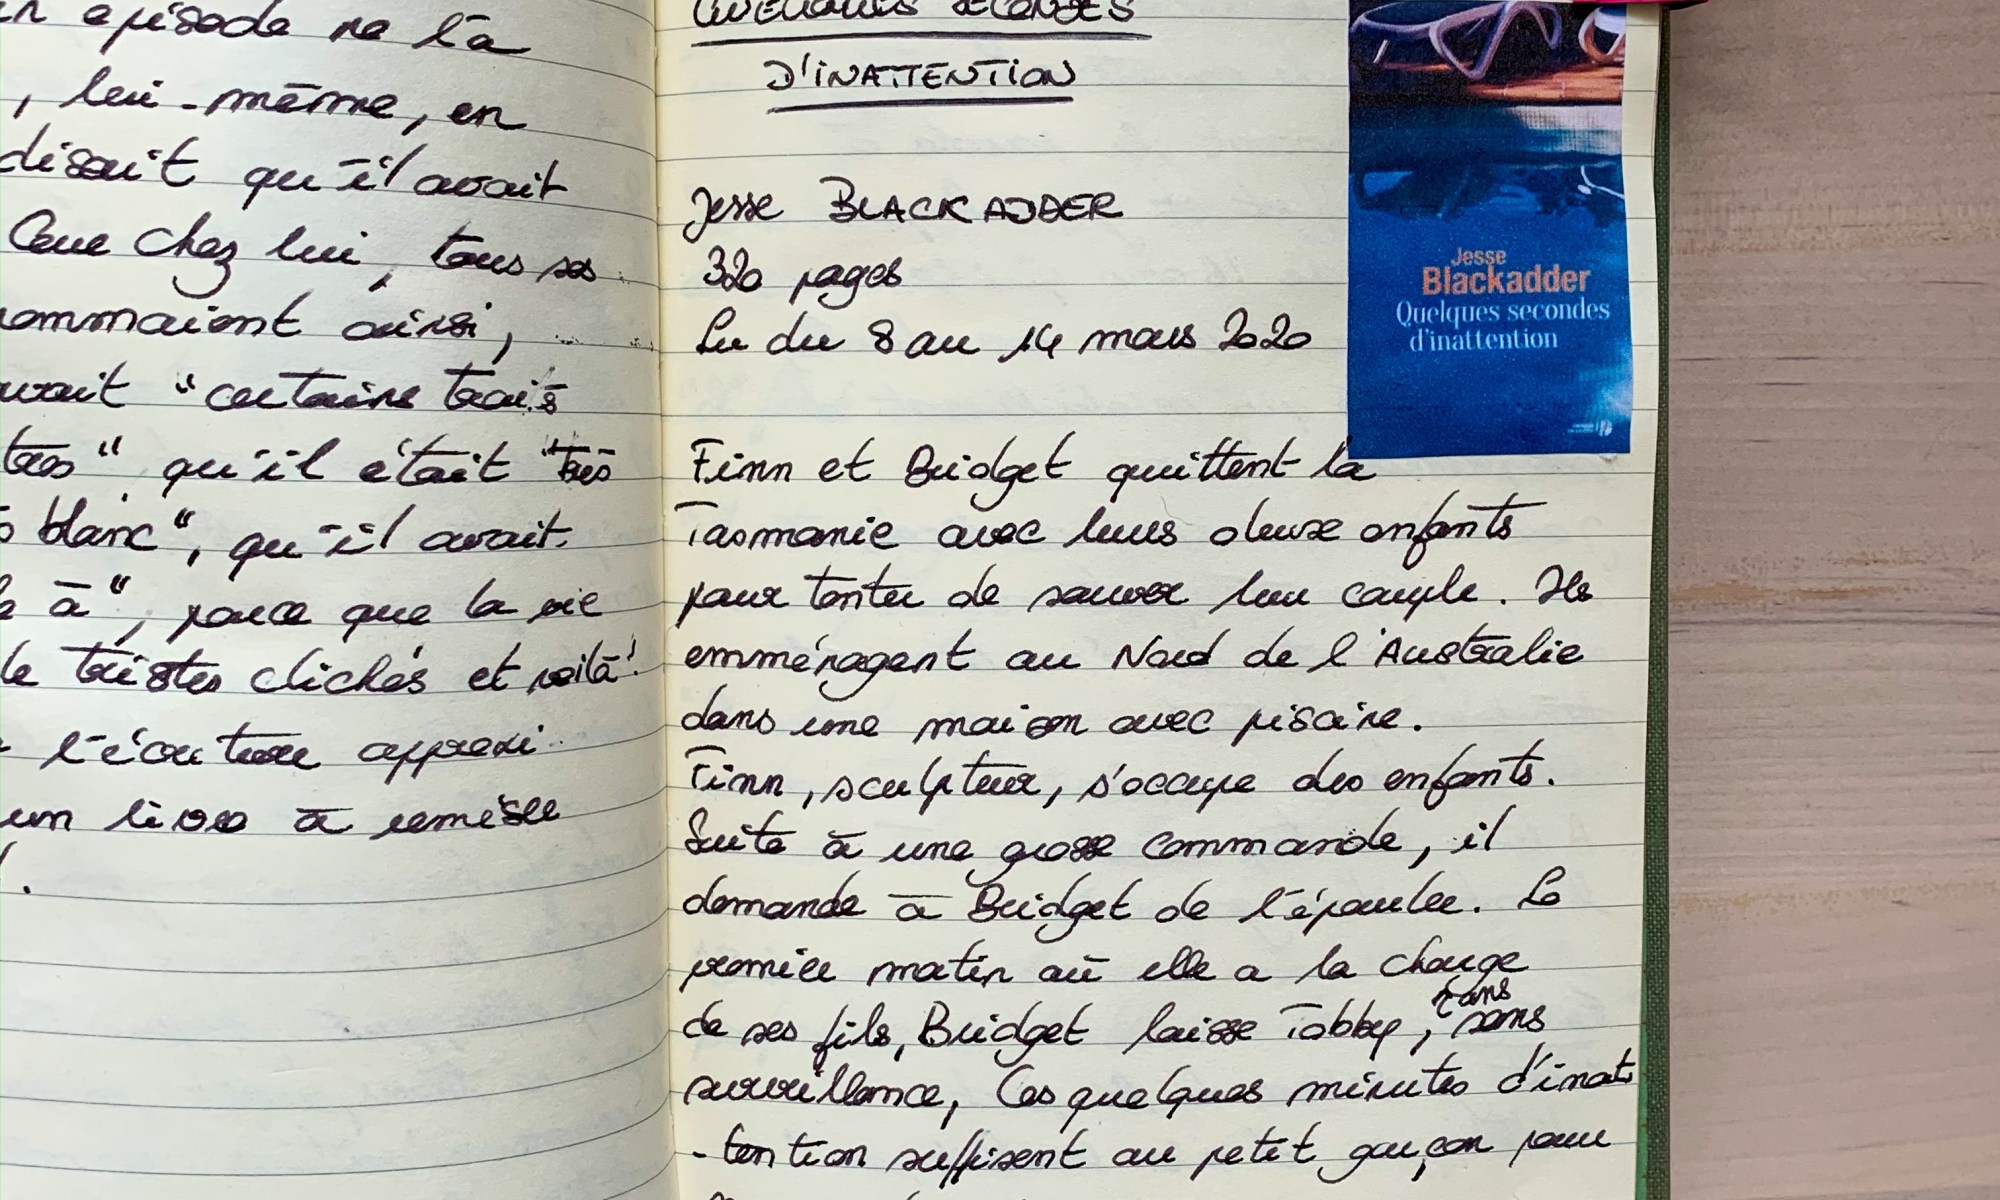 épisode ne l'a
, lui-même, en
disait qu'il avait
chez lui, tous ses
ommaient ainsi,
"certains traits
" qu'il était "très
blanc", qu'il avait
à", parce que la vie
de tristes clichés et voilà!
l'écriture approxi
un livre à remiser
.
QUELQUES SECONDES
D'INATTENTION
Jesse BLACKADDER
320 pages
Lu du 8 au 14 mars 2020
Finn et Bridget quittent la
Tasmanie avec leurs deux enfants
pour tenter de sauver leur couple. Ils
emménagent au Nord de l'Australie
dans une maison avec piscine.
Finn, sculpteur, s'occupe des enfants.
Suite à une grosse commande, il
demande à Bridget de l'épauler. Le
premier matin où elle a la charge
de ses fils, Bridget laisse Tobby, sans
surveillance, Ces quelques minutes d'inat
-tention suffisent au petit garçon pour
Jesse
Blackadder
Quelques secondes
d'inattention